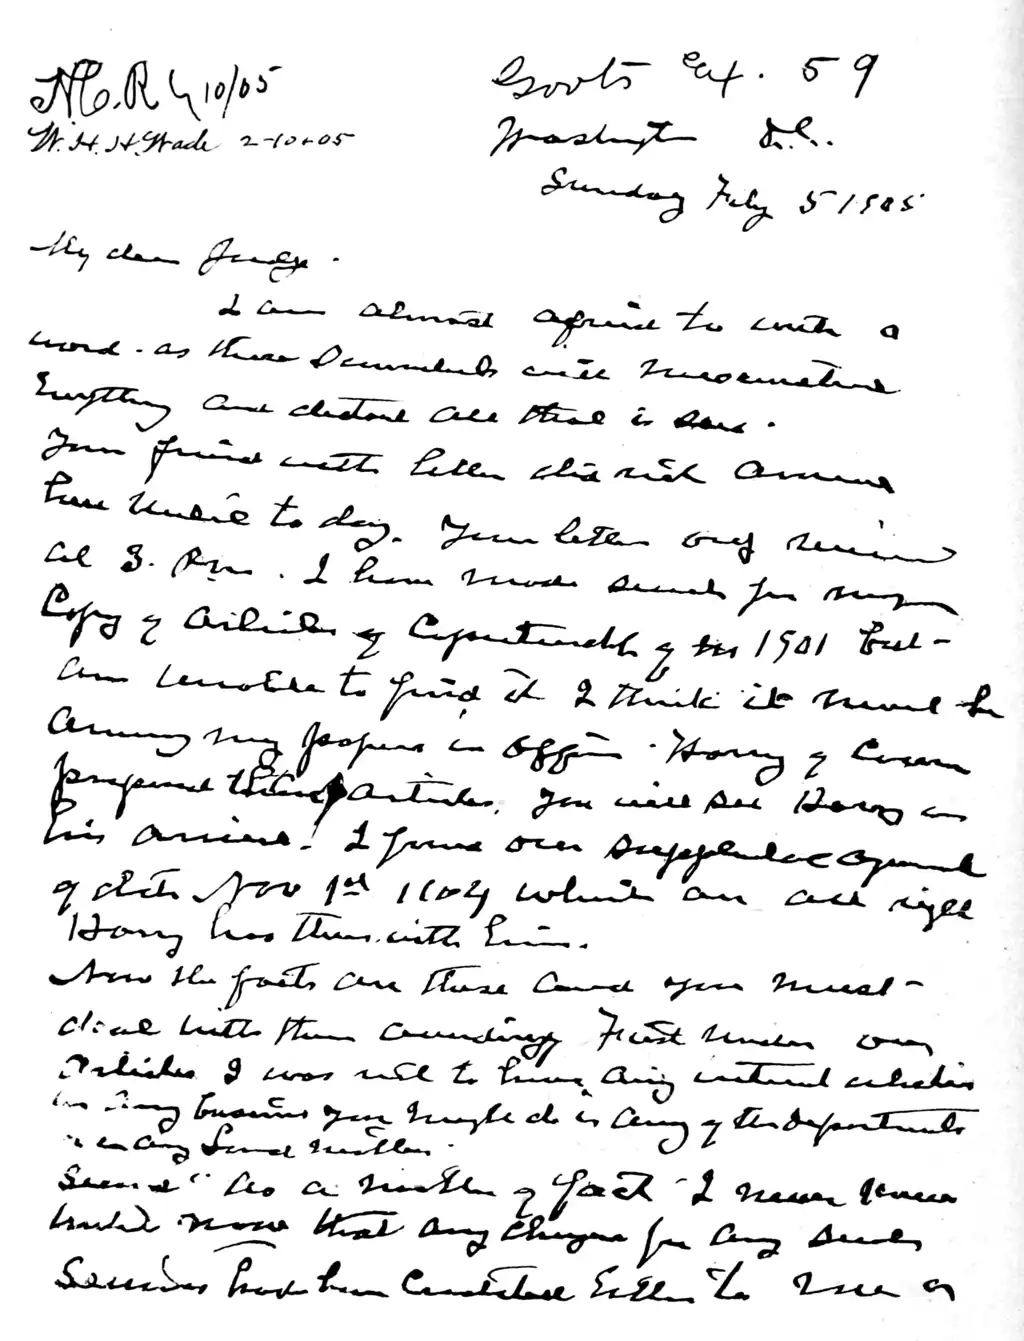 10/05
W. H. H. Wade 2-10-05
Govts Ex. 59
Washington D.C.
Sunday Feby 5 1905
My dear Judge.
I am almost afraid to write a
word. as these Scoundrels will misconstrue
Everything and distort all that is said.
Your friend with letter did not arrive
here until to day. Your letter only received
at 3. Pm. I have made search for my
Copy of Articles of Copartnership of 1901 but
am unable to find it I think it must be
among my papers in office. Harry of Course
prepared these articles. You will see Harry on
his arrival. I found our supplemental agreement
of date Nov 1st 1904 which are all right
Harry has them with him.
Now the facts are these and you must
deal with them accordingly First under our
Articles I was not to have any interest whatever
in any business you might do in any of the Departments
or in any Land matters.
Second" As a matter of fact I never knew
until now that any charges for any such
Services had been Credited Either to me or